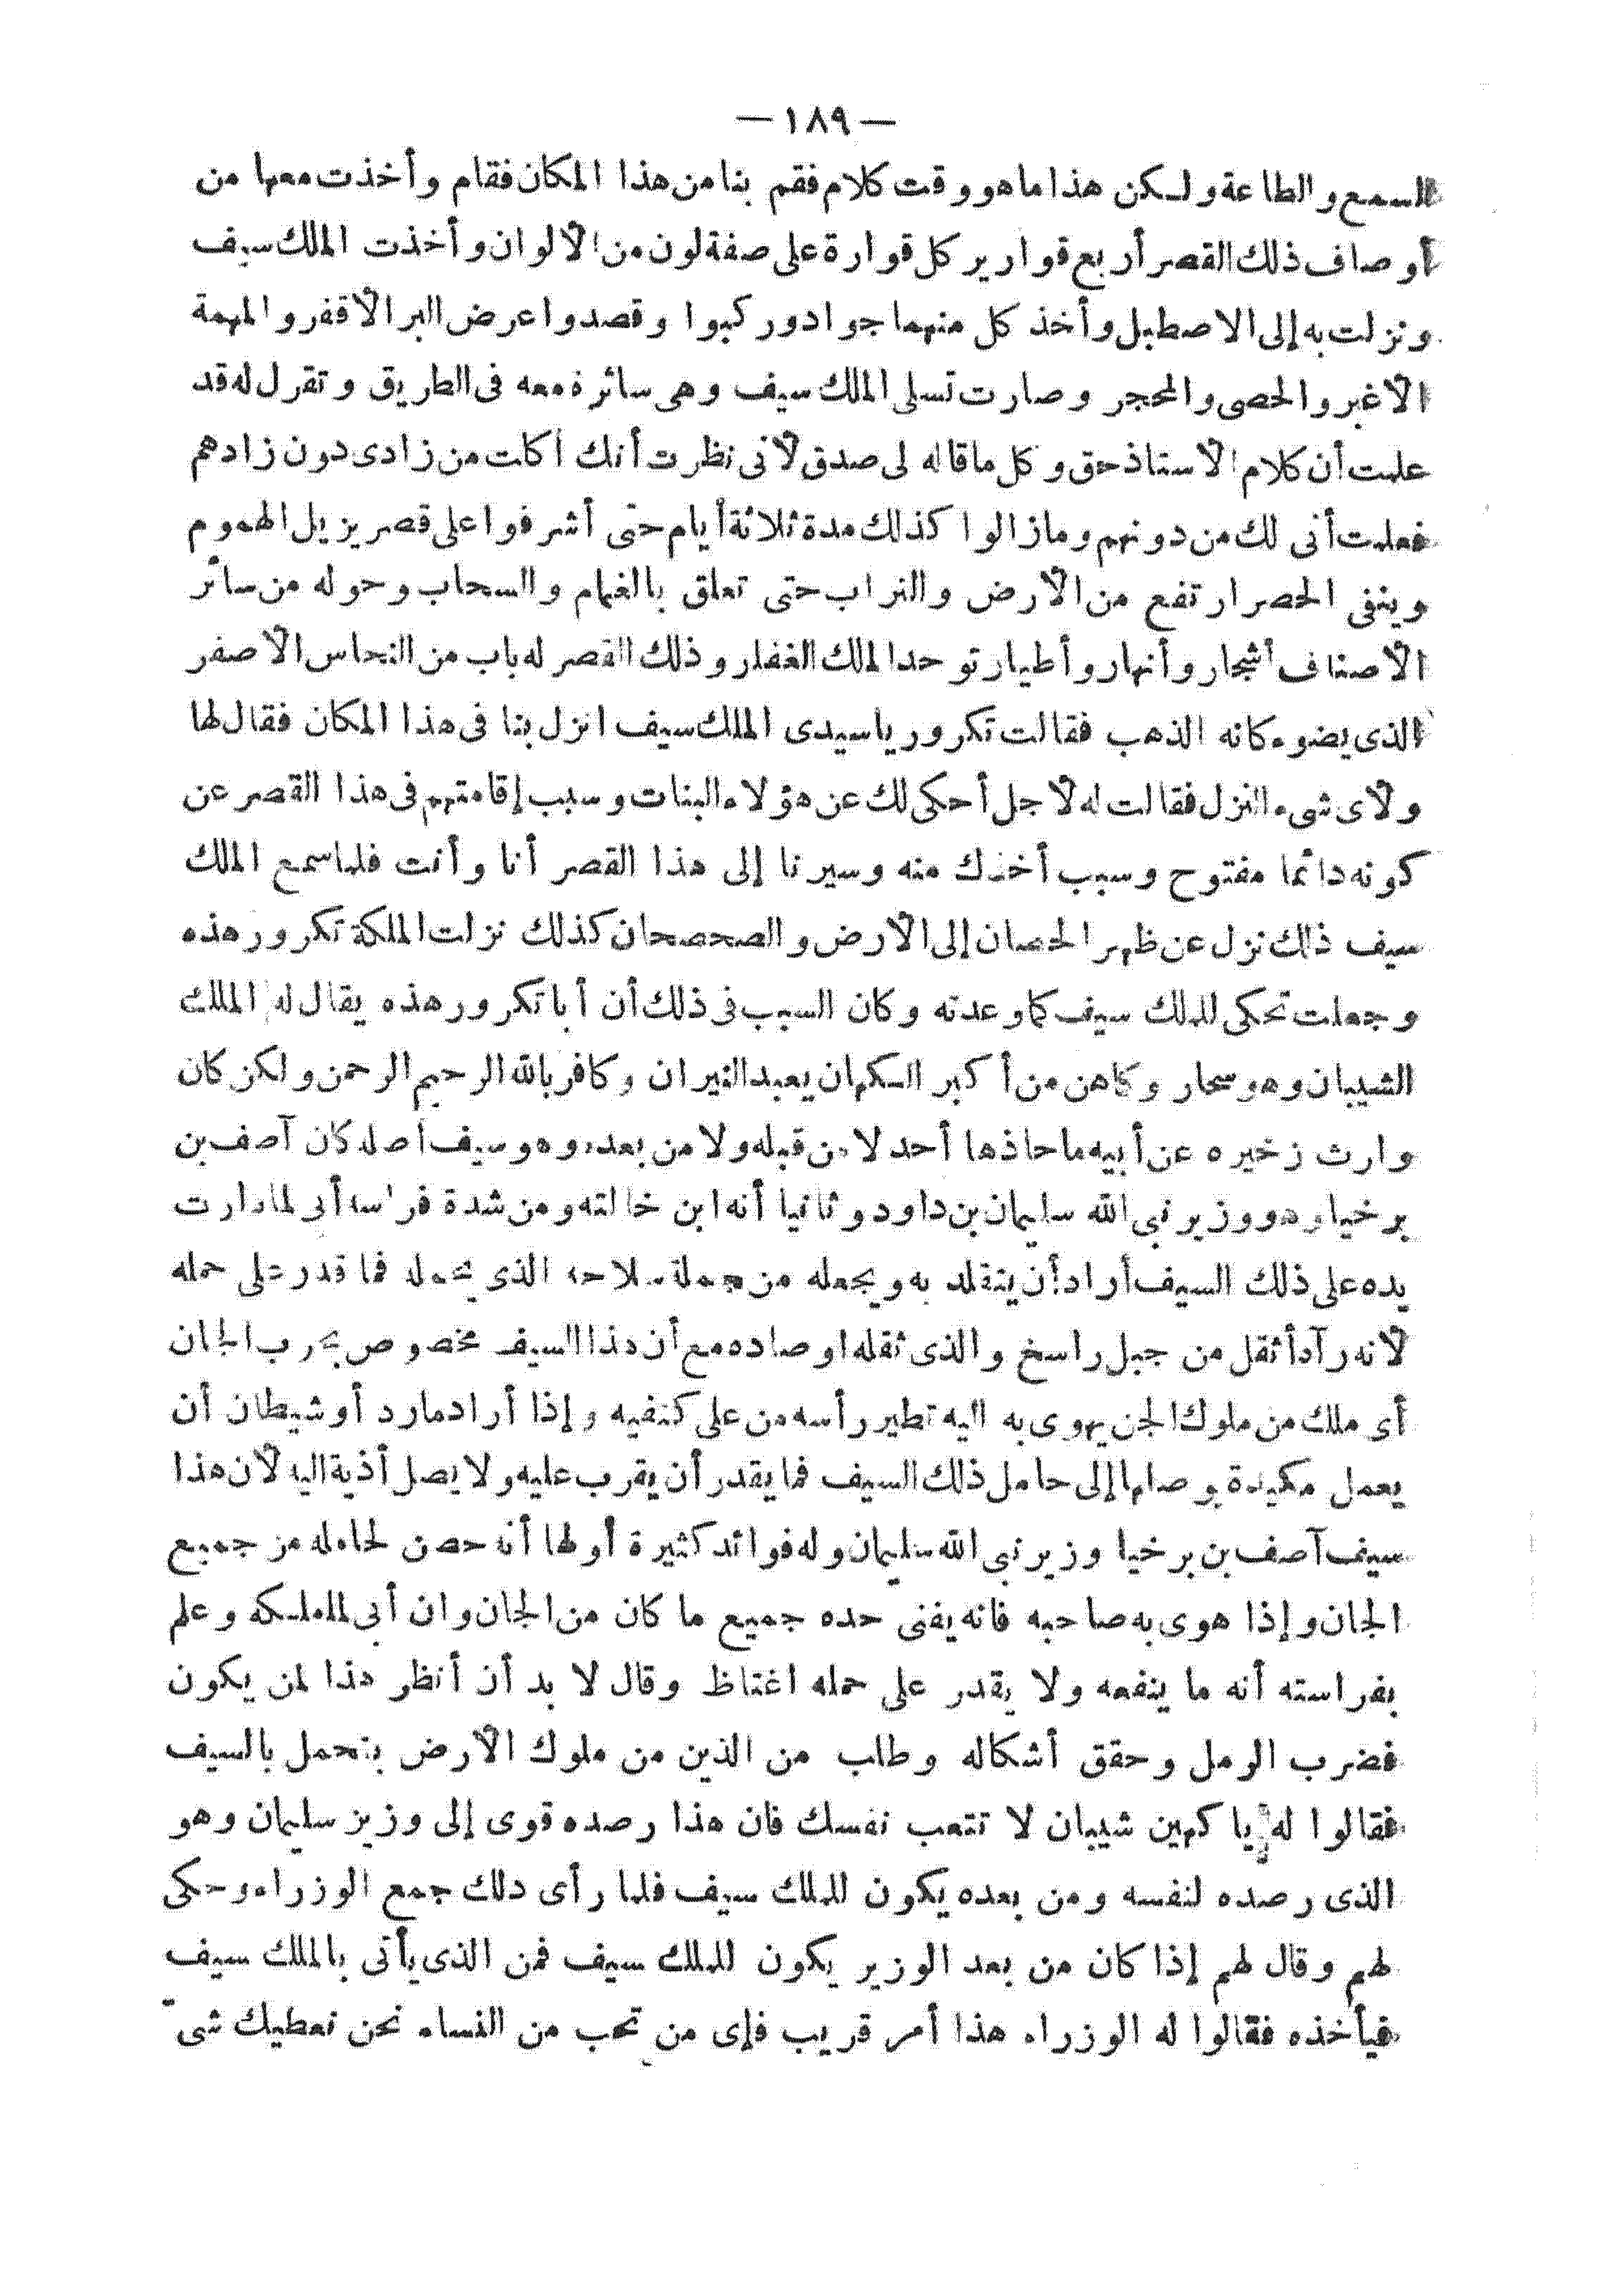 — ١٨٩ —
السمع والطاعة ولكن هذا ما هو وقت كلام فقم بنا من هذا المكان فقام وأخذت معها من
أوصاف ذلك القصر أربع قوارير كل قوارة على صفة لون من الألوان وأخذت الملك سيف
ونزلت به إلى الاصطبل وأخذ كل منهما جوادور كبوا وقصدوا عرض البر الأقفر والمهمة
الأغبر والحصى والمحجر وصارت تسلى الملك سيف وهى سائرة معه فى الطريق وتقرل له قد
علمت أن كلام الأستاذ حق وكل ما قاله لى صدق لأنى نظرت أنك أكلت من زادى دون زادهم
فعلمت أنى لك من دونهم ومازالوا كذلك مدة ثلاثة أيام حتى أشرفوا على قصر يزيل الهموم
وينفى الحصر ارتفع من الأرض والتراب حتى تعلق بالغمام والسحاب وحوله من سائر
الأصناف أشجار وأنهار وأطيار توحد الملك الغفار وذلك القصر له باب من النحاس الأصفر
الذى يضوء كانه الذهب فقالت تكرور ياسيدى الملك سيف انزل بنا فى هذا المكان فقال لها
ولأى شىء النزل فقالت له لأجل أحكى لك عن هؤلاء البنات وسبب إقامتهم فى هذا القصر عن
كونه دائما مفتوح وسبب أخذك منه وسيرنا إلى هذا القصر أنا وأنت فلما سمع الملك
سيف ذلك نزل عن ظهر الحصان إلى الأرض والصحصحان كذلك نزلت الملكة تكرور هذه
وجعلت تحكى للملك سيف كما وعدته وكان السبب فى ذلك أن أبا تكرور هذه يقال له الملك
الشيبان وهو سحار وكاهن من أكبر الكهان يعبد النيران وكافر بالله الرحيم الرحمن ولكن كان
وارث زخيره عن أبيه ما حاذها أحد لا من قبله ولا من بعده وهو سيف أصله كان آصف بن
برخيا وهو وزير نبى الله سليمان بن داود وثانيا أنه ابن خالته ومن شدة فراسة أبى لما دارت
يده على ذلك السيف أراد أن يتقلد به ويجعله من جملة سلاحه الذى يحمله فما قدر على حمله
لأنه رآه أثقل من جبل راسخ والذى ثقله اوصاده مع أن هذا السيف مخصوص بحرب الجان
أى ملك من ملوك الجن يهوى به اليه تطير رأسه من على كتفيه وإذا أراد مارد أو شيطان أن
يعمل مكيدة يوصلها إلى حامل ذلك السيف فما يقدر أن يقرب عليه ولا يصل أذية اليه لأن هذا
سيف آصف بن برخيا وزير نبى الله سليمان وله فوائد كثيرة أولها أنه حصن لحامله من جميع
الجان وإذا هوى به صاحبه فانه يفنى حده جميع ما كان من الجان وان أبى لما ملكه وعلم
بفراسته أنه ما ينفعه ولا يقدر على حمله اغتاظ وقال لا بد أن أنظر هذا لمن يكون
فضرب الرمل وحقق أشكاله وطلب من الذين من ملوك الأرض يتحمل بالسيف
فقالوا له يا كهين شيبان لا تتعب نفسك فان هذا رصده قوى إلى وزيز سليمان وهو
الذى رصده لنفسه ومن بعده يكون للملك سيف فلما رأى دلك جمع الوزراء وحكى
لهم وقال لهم إذا كان من بعد الوزير يكون للملك سيف فمن الذى يأتى بالملك سيف
فيأخذه فقالوا له الوزراء هذا أمر قريب فإى من تحب من النساء نحن نعطيك شى